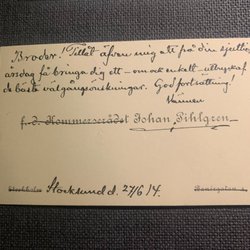 Broder! Tillåt äfven mig att på din sjuttio-
årsdag få bringa dig ett – om ock enkelt – uttryck af
de bästa välgångsönskningar. God fortsättning!
Vännen
f. d. Kommerserådet Johan Pihlgren
Stockholm Stocksund d. 27/6 14.